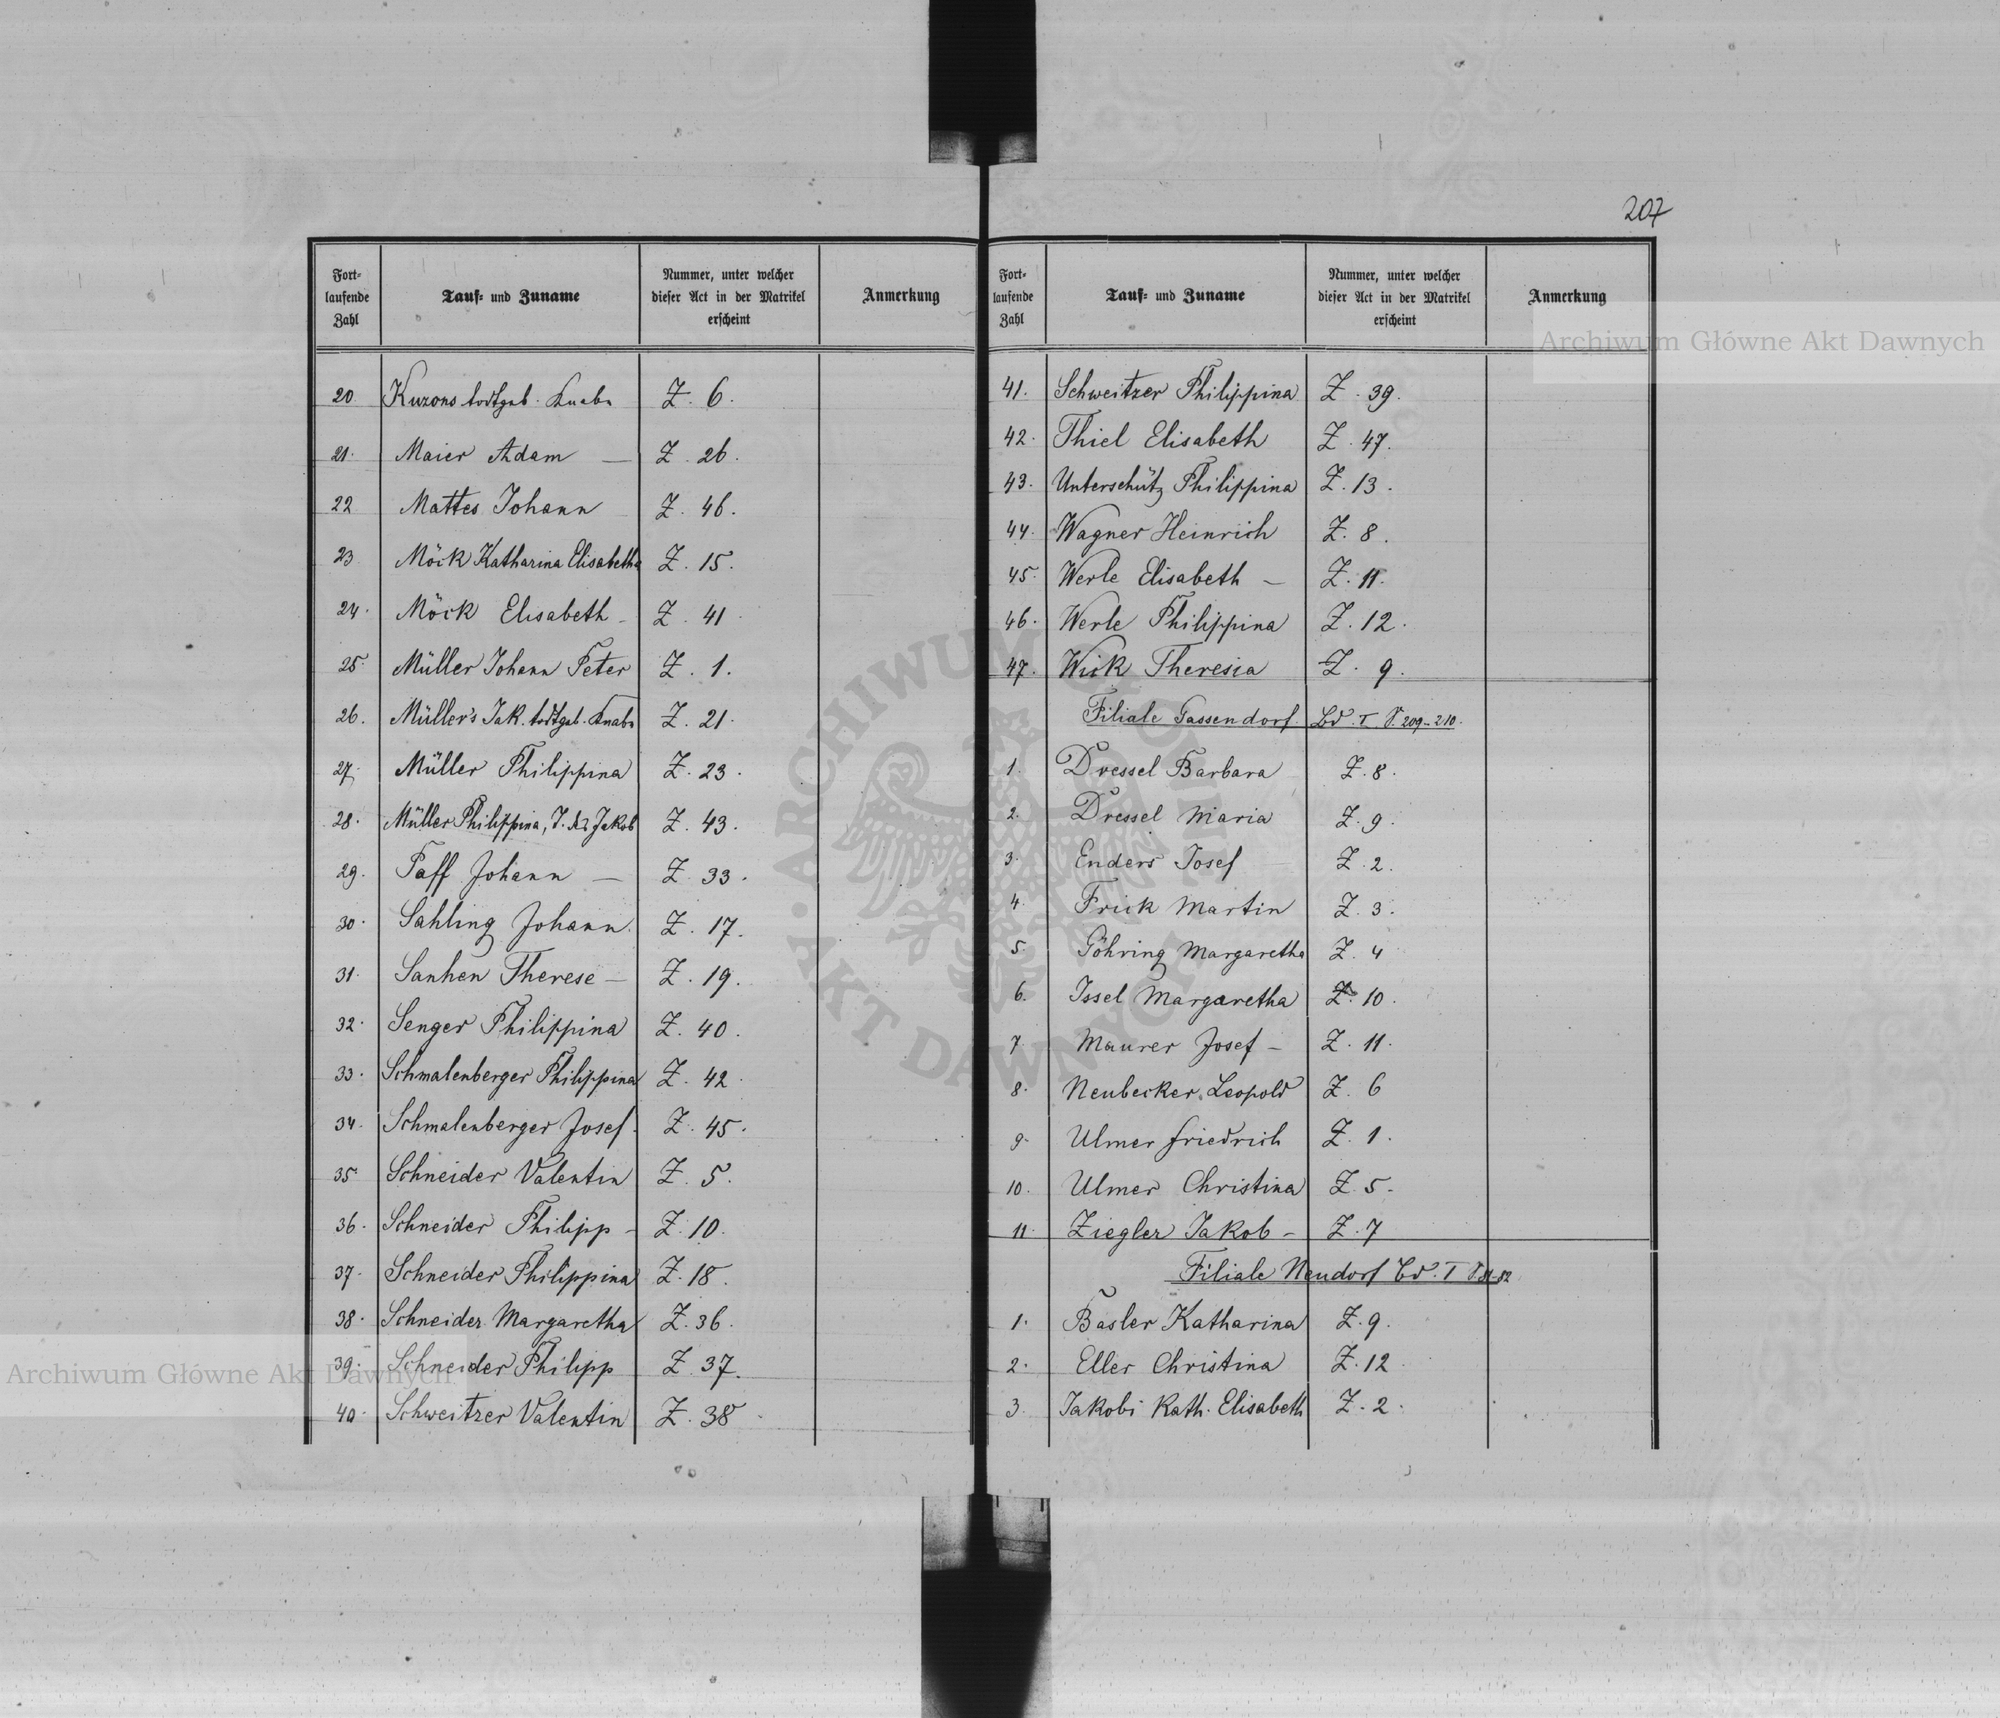 207
Fort-
laufende
Zahl
Tauf- und Zuname
Nummer, unter welcher
dieser Act in der Matrikel
erscheint
Anmerkung
20 Kuzons todtgeb. Knabe Z. 6.
21. Maier Adam — Z. 26.
22 Mattes Johann Z. 46.
23 Möck Katharina Elisabetha Z. 15.
24. Möck Elisabeth - Z. 41
25. Müller Johann Peter Z. 1.
26. Müller's Jak. todtgeb. Knabe Z. 21.
27. Müller Philippina Z. 23.
28. Müller Philippina, T. des Jakob Z. 43.
29. Paff Johann — Z. 33.
30. Sahling Johann. Z. 17.
31. Sanhen Therese — Z. 19.
32. Senger Philippina Z. 40.
33. Schmalenberger Philippina Z. 42
34. Schmalenberger Josef. Z. 45.
35. Schneider Valentin Z. 5.
36. Schneider Philipp - Z. 10.
37. Schneider Philippina Z. 18.
38. Schneider Margaretha Z. 36.
39. Schneider Philipp Z. 37.
40. Schweitzer Valentin Z. 38
Fort-
laufende
Zahl
Tauf- und Zuname
Nummer, unter welcher
dieser Act in der Matrikel
erscheint
Anmerkung
41. Schweitzer Philippina Z. 39.
42. Thiel Elisabeth Z. 47.
43. Unterschütz Philippina Z. 13.
44. Wagner Heinrich Z. 8.
45. Werle Elisabeth — Z. 11.
46. Werle Philippina Z. 12.
47. Wick Theresia Z. 9.
Filiale Gassendorf. Bd. I S. 209-210.
1. Dressel Barbara Z. 8.
2. Dressel Maria Z. 9.
3. Enders Josef Z. 2.
4. Frick Martin Z. 3.
5. Göhring Margaretha Z. 4
6. Issel Margaretha Z. 10.
7 Maurer Josef — Z. 11.
8. Neubecker Leopold Z. 6
9. Ulmer Friedrich Z. 1.
10. Ulmer Christina Z. 5.
11. Ziegler Jakob — Z. 7
Filiale Neudorf Bd. I S. 81-82
1. Basler Katharina Z. 9.
2. Eller Christina Z. 12
3. Jakobi Kath. Elisabeth Z. 2.
Archiwum Główne Akt Dawnych
Archiwum Główne Akt Dawnych
ARCHIWUM GŁÓWNE AKT DAWNYCH